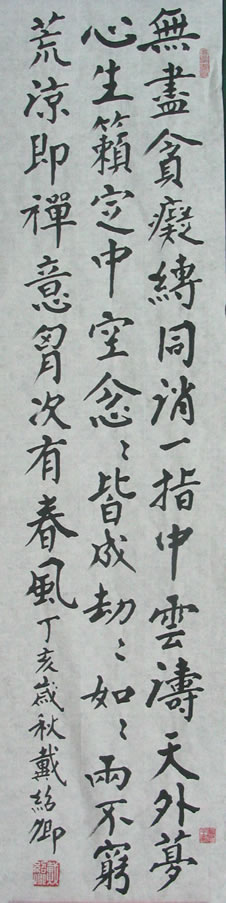 無盡貪癡縛同消一指中雲濤天外夢
心生籟定中空念〻皆成劫〻如〻兩不窮
荒涼即禪意胷次有春風丁亥歲秋戴紹卿